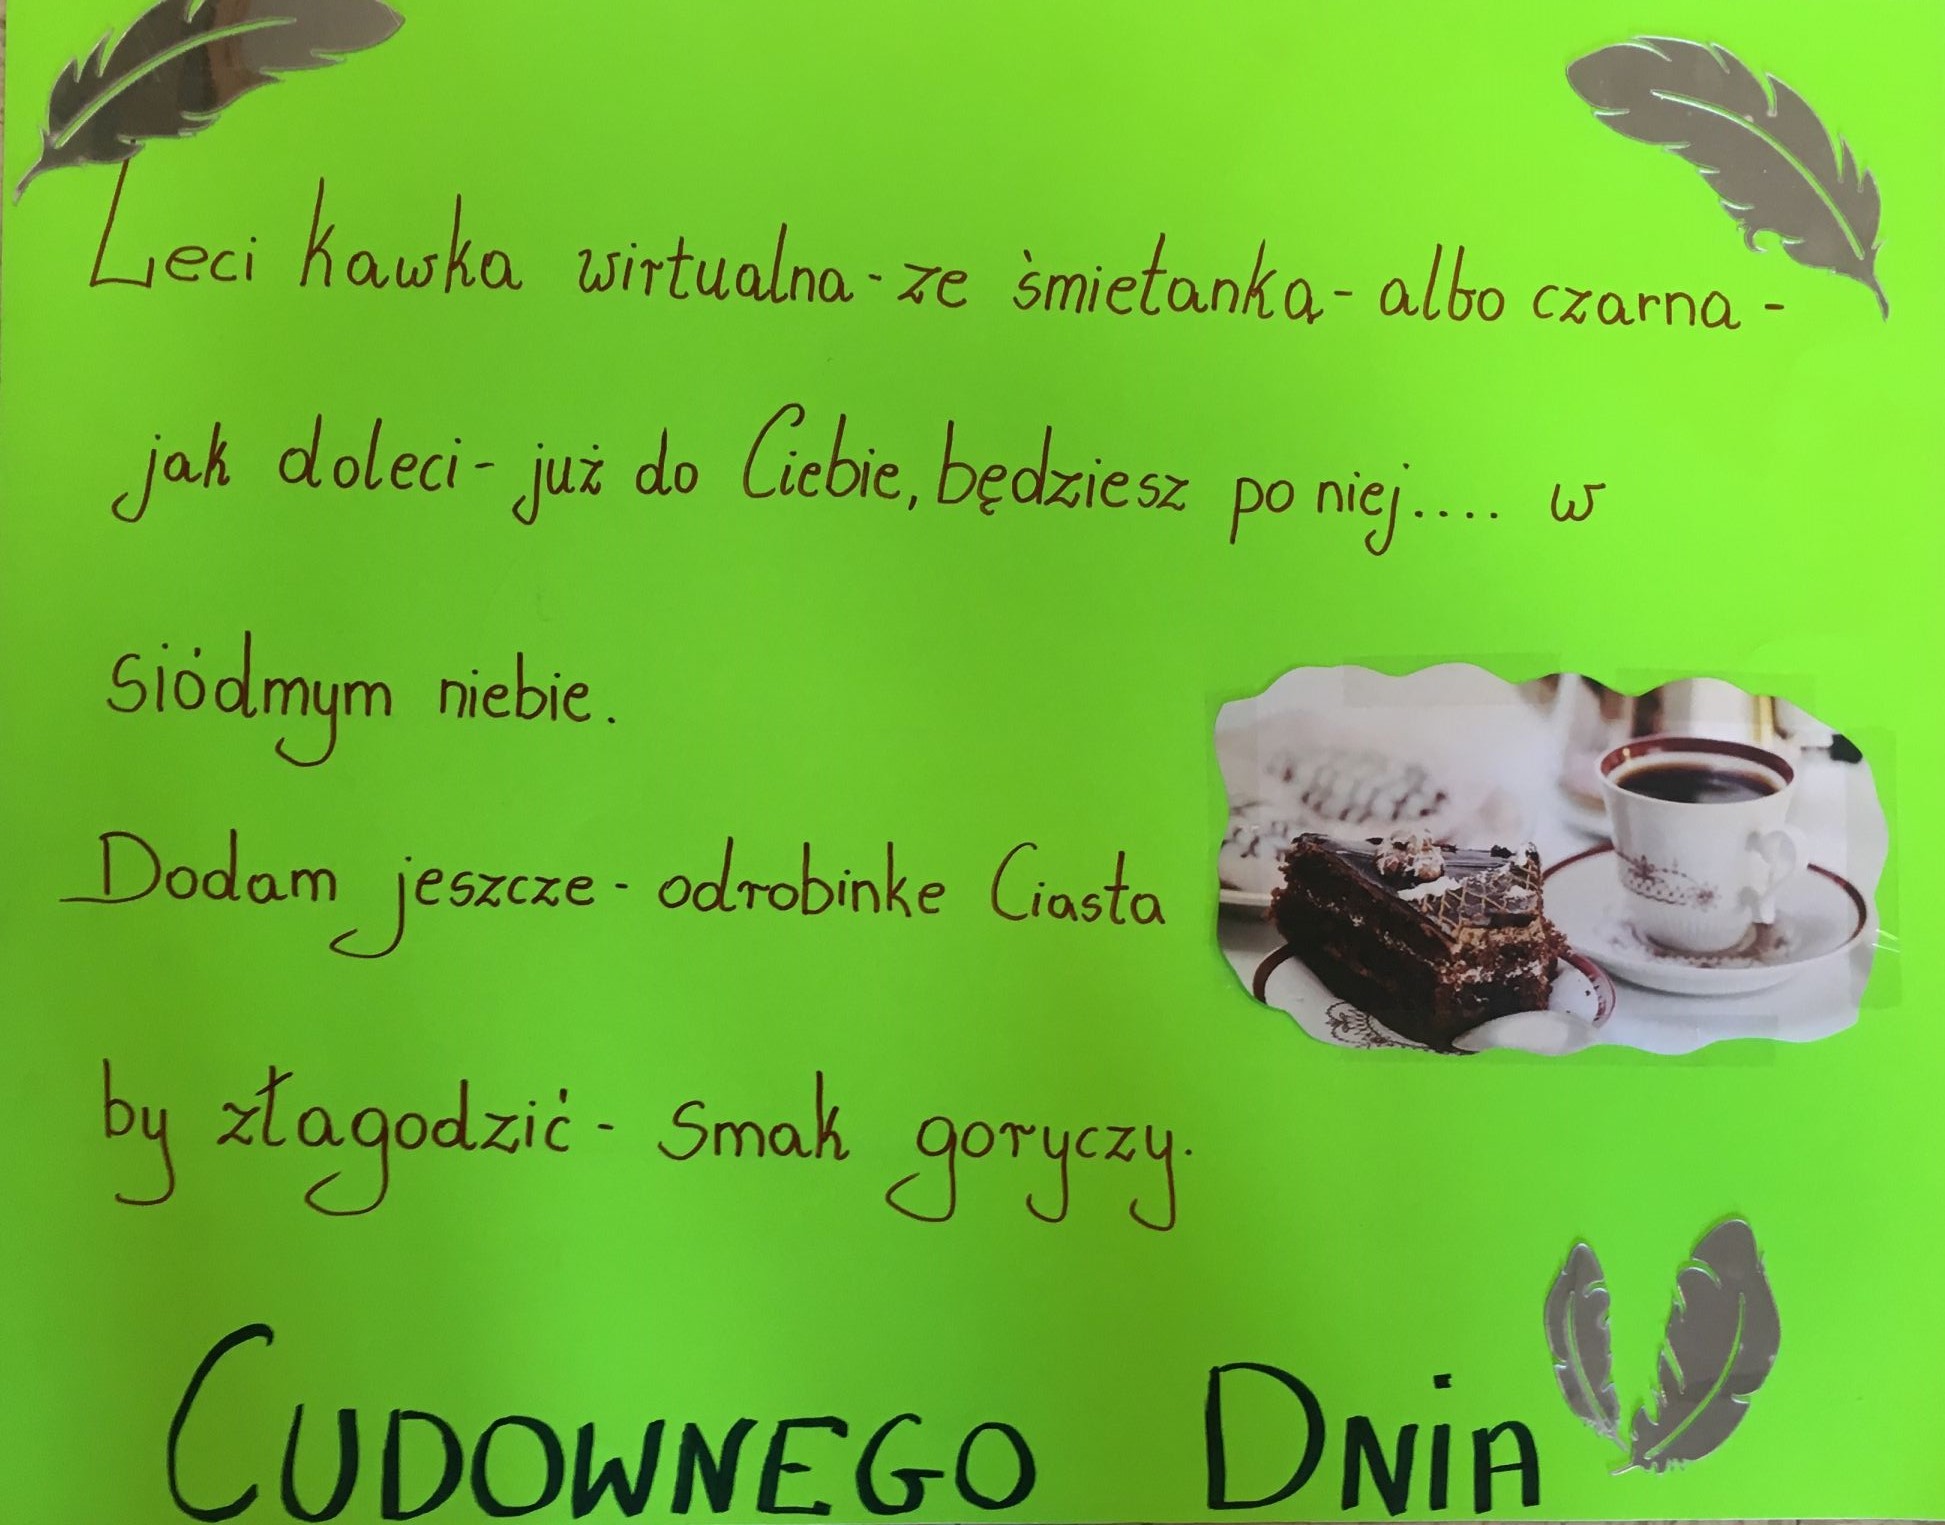 Leci kawka wirtualna - ze śmietanką - albo czarna -
jak doleci - już do Ciebie, będziesz po niej.... w
siódmym niebie.
Dodam jeszcze - odrobinke Ciasta
by złagodzić - smak goryczy.
CUDOWNEGO DNiA